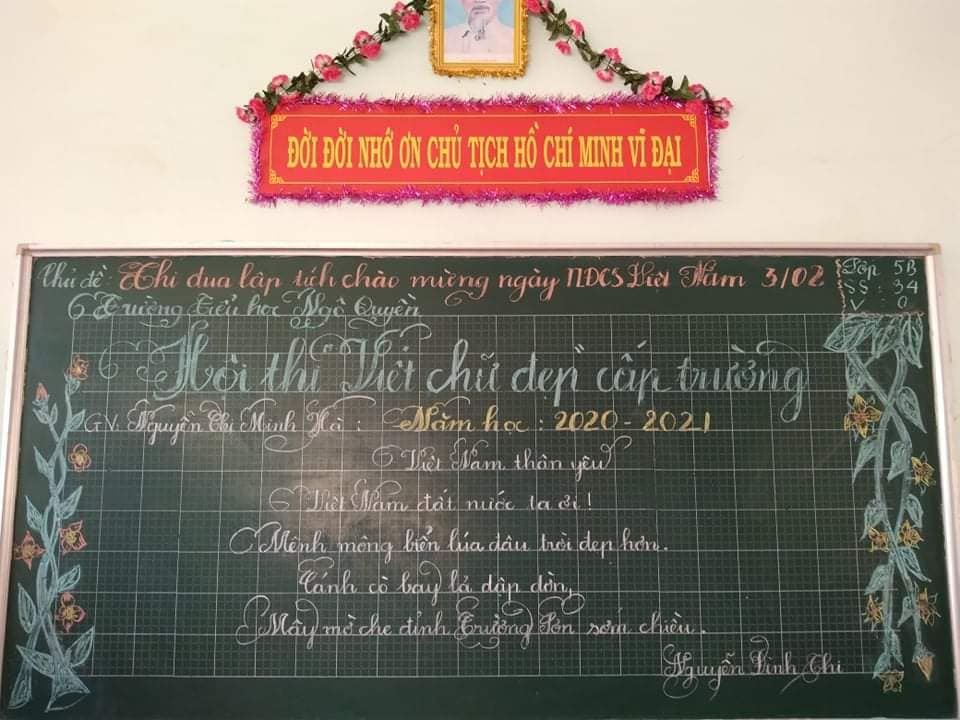 ĐỜI ĐỜI NHỚ ƠN CHỦ TỊCH HỒ CHÍ MINH VĨ ĐẠI
Chủ đề: Thi đua lập tích chào mừng ngày TLĐCS Việt Nam 3/02
Lớp : 5B
SS : 34
V : 0
Trường Tiểu học Ngô Quyền
Hội thi "Viết chữ đẹp" cấp trường
GV: Nguyễn Thị Minh Hà : Năm học : 2020 - 2021
Việt Nam thân yêu
Việt Nam đất nước ta ơi!
Mênh mông biển lúa đâu trời đẹp hơn.
Cánh cò bay lả dập dờn,
Mây mờ che đỉnh Trường Sơn sớm chiều.
Nguyễn Đình Thi